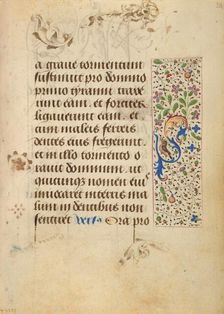 a graue tormentum
sustinuit pro domino
primo tyranni traxe
runt eam. et fortiter
ligauerunt eam. et
cum malleis ferreis
dentes eius fregerunt
et in illo tormento o
rauit dominum. ut
quicunque nomen eius
inuocaret interris ma
lum in dentibus non
sentiret vers. Ora pro